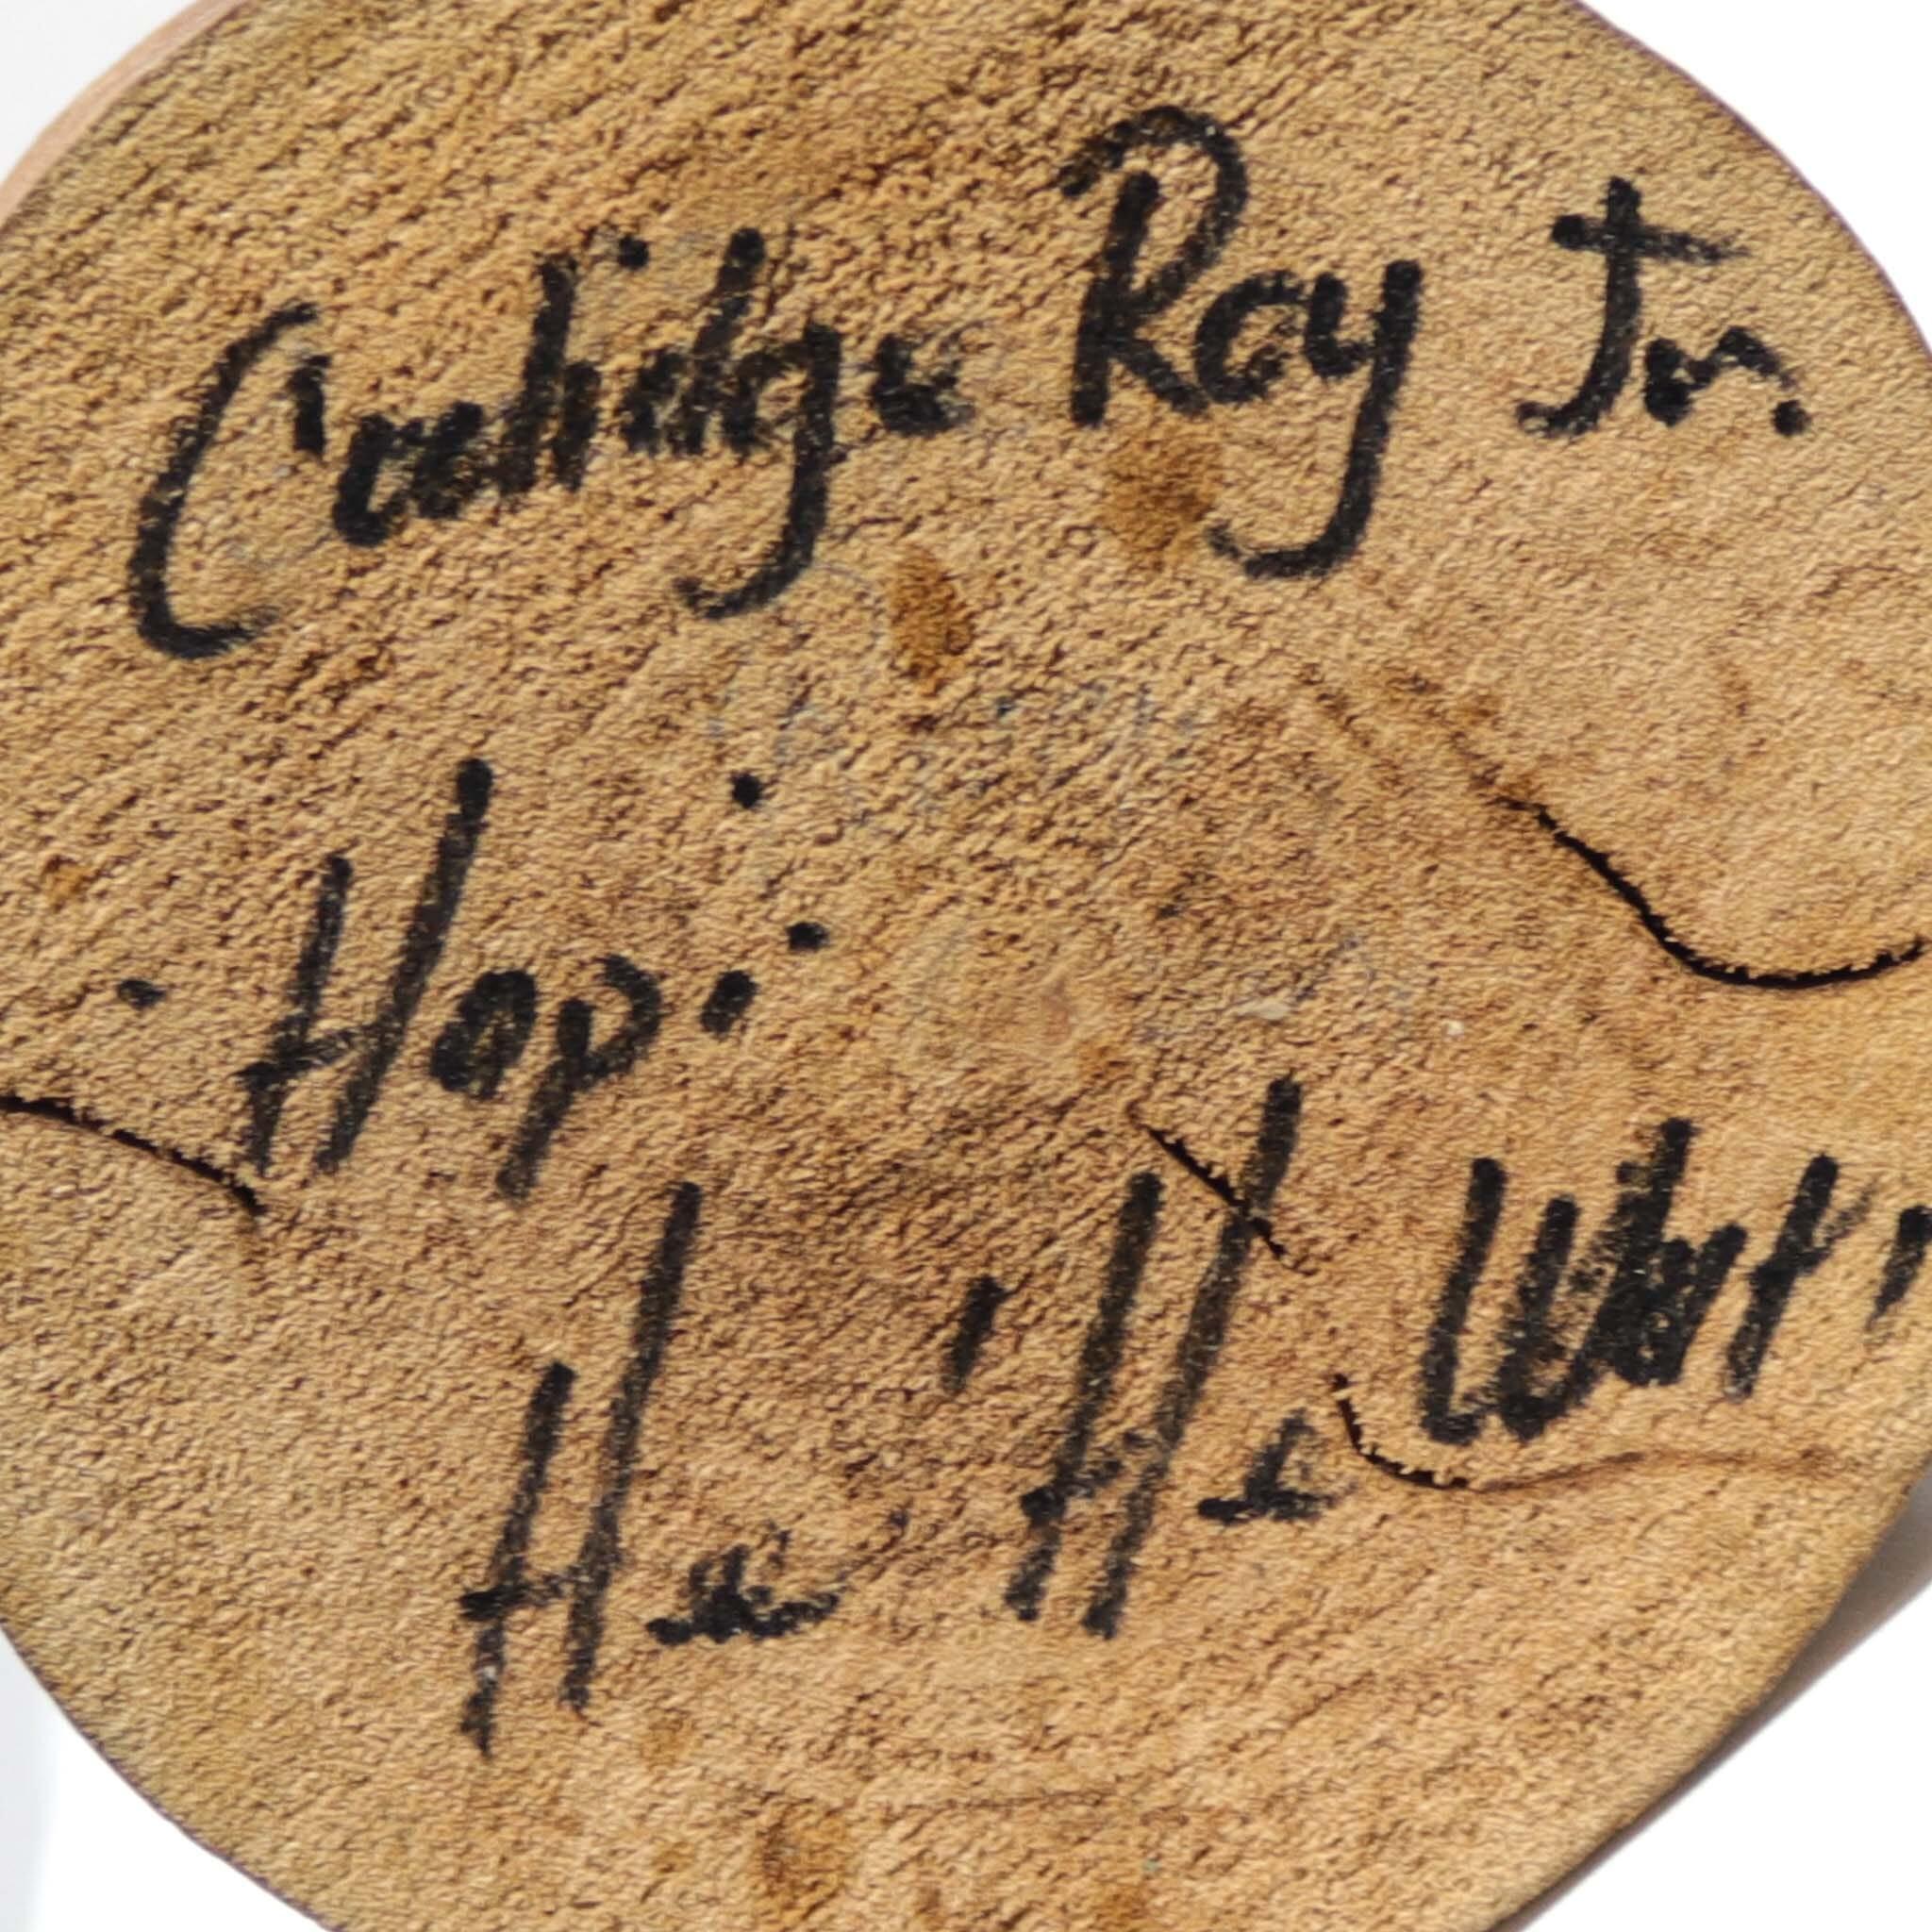 Coolidge Roy Jr.
- Hopi
He'He Wut'